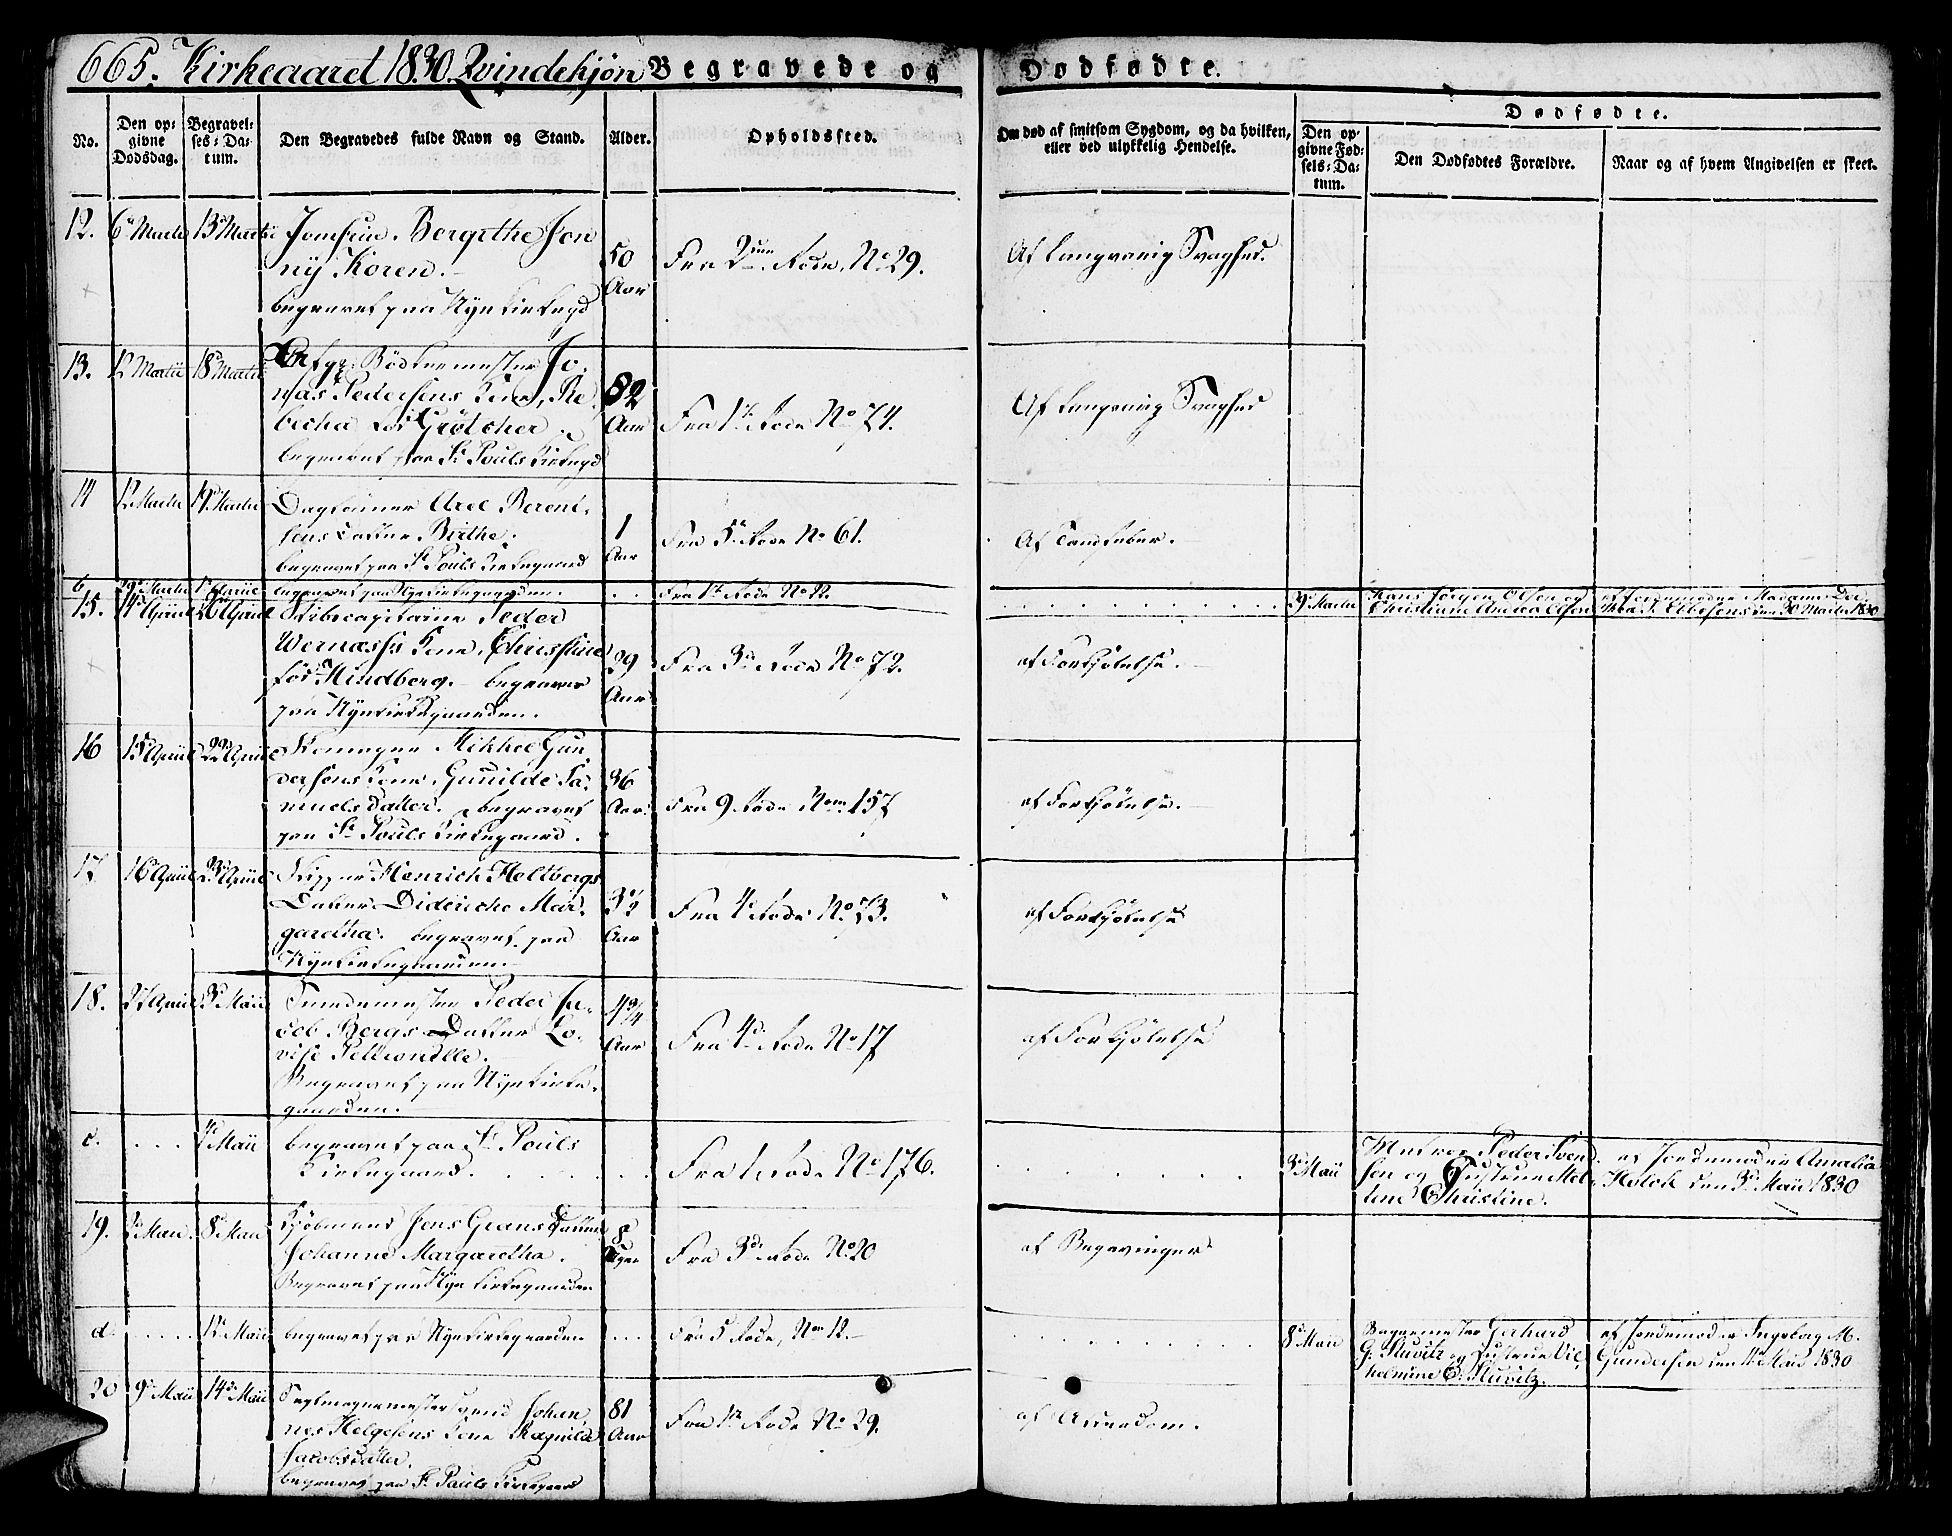 665. Kirkeaaret 1830. Qvindekjøn Begravede og Dødfødte.
No.
Den op-
givne
Dødsdag.
Begravel-
ses-Da-
tum.
Den Begravedes fulde Navn og Stand.
Alder.
Opholdssted.
Om død af smitsom Sygdom, og da hvilken,
eller ved ulykkelig Hendelse.
Dødfødte.
Den op-
givne Fød-
sels-Da-
tum.
Den Dødfødtes Forældre.
Naar og af hvem Angivelsen er skeet.
12. 6 Martii 13 Martii Jomfrue Bergithe Jen
ny Koren.
begravet paa Nykirkegd
50
Aar
Fra 2den Rode, No 29.
Af langvarig Svaghed.
13. 12 Martii 18 Martii
Bødkermester Jo-
nas Pedersens Kone, Re-
becha fød Grøtcher
begravet paa St Pouls Kirkegd
82
Aar
Fra 1te Rode No 74.
Af langvarig Svaghed
14 12 Martii 19 Martii Dagleiner Axel Berent-
sens Datter Birthe.
begravet paa St Pouls Kirkegaard
1
Aar
Fra 5te Rode No 61.
Af Tandfeber.
b 29 Martii begravet paa Nykirkegaarden.
Fra 1te Rode No 12.
29 Martii
Hans Jørgen Olsen og
Christiane Andrea Olsen
af Jordemoder Madame Do-
Ellefsen den 30 Martii 1830
15. 14 Apriil 20 Apriil Skibscapitaine Peder
Wernæss's Kone, Christine
fød Mindberg. begravet
paa Nykirkegaarden.
29
Aar
Fra 3de Rode No 72.
af Forkjølelse.
16 15 Apriil 22 Apriil Mikkel Gun-
dersens Kone, Gunilde Sa-
muels datter. begravet
paa St Pouls Kirkegaard.
36
Aar
Fra 9 Rode Nom 157
af Forkjølelse.
17 16 Apriil 23 Apriil Skipper Henrich Holtbergs
Datter Dideriche Mar-
garetha. begravet paa
Nykirkegaarden.
3½
Aar
Fra 4de Rode No 73.
af Forkjølelse
18. 27 Apriil 3 Maii Smedemester Peder Ja-
cob Bergs Datter Lo-
vise Petronelle.
Begravet paa Nykirke-
gaarden.
4¾
Aar
Fra 4de Rode No 17
af Forkjølelse
c. 7 Maii begravet paa St Pouls
Kirkegaard.
Fra 1 Rode No 176.
3 Maii
Peder Svend-
sen og Hustrue Mal-
ene Christine.
af Jordemoder Amalia
Holck den 3 Maii 1830
19. 2 Maii 8 Maii Kjøbmand Jens Grans Datter
Johanne Margaretha.
Begravet paa Nykirkegaarden
8
Uger
Fra 3de Rode No 20
af Begavinger
d. 12 Maii begravet paa Nykirkegaarden
Fra 5 Rode, Nom 12.
8 Maii
Bagermester Gerhard
G. Stuwitz og Hustrue Vil-
helmine E. Stuwitz.
af Jordemoder Ingeborg M.
Gundersen den 11 Maii 1830
20 9 Maii 14 Maii Seglmagermestersvend Johan-
nes Helgesens Kone Ragnilde
Jacobsdatter.
begravet paa St Pouls Kirkegaard
81
Aar
Fra 1te Rode No 29.
af Alderdom.